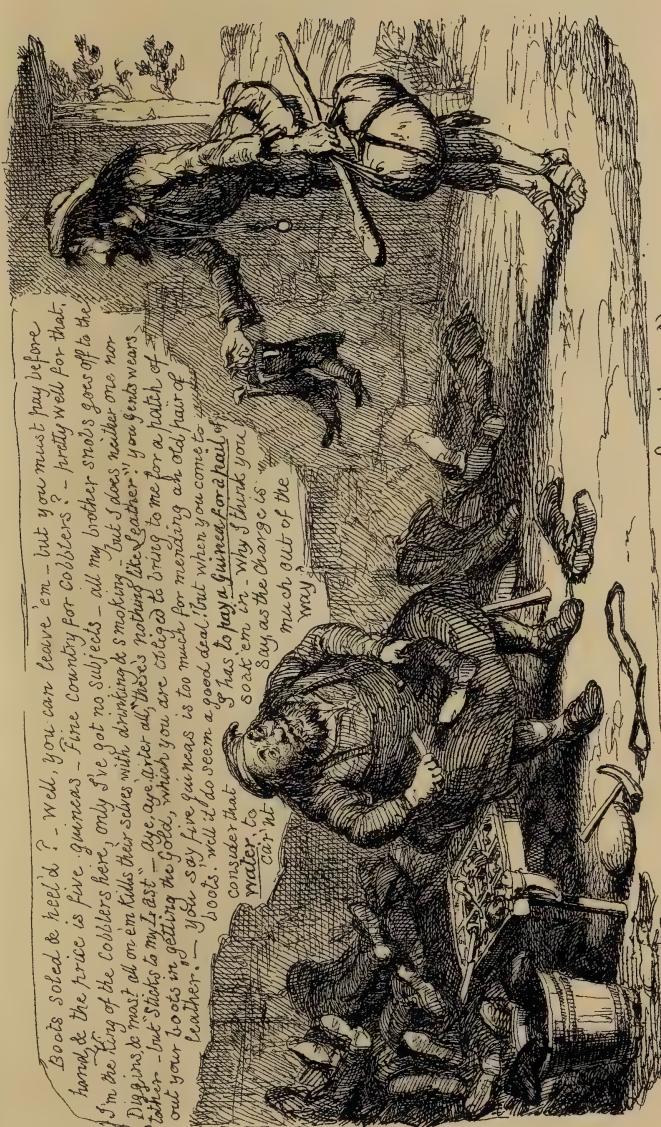 Boots soled & heel'd ? - Well, you can leave 'em - but you must pay before
hand, & the price is five guineas - Fine Country for Cobblers ? - pretty well for that,
I'm the King of the Cobblers here, only I've got no subjects - all my brother snobs goes off to the
Diggins & most all on em kills their selves with drinking & smoking - but I does neither one nor
t'other - but "Sticks to my Last" - aye, aye, after all, "there's nothing like Leather" - you gents wears
out your boots in getting the Gold, which you are obleged to bring to me for a patch of
leather. - You say five guineas is too much for mending an old pair of
boots. well it do seem a good deal. but when you come to
consider that I has to pay a Guinea for a pail of
water to soak 'em in - Why I think you
carn't say, as the charge is
much out of the
way,